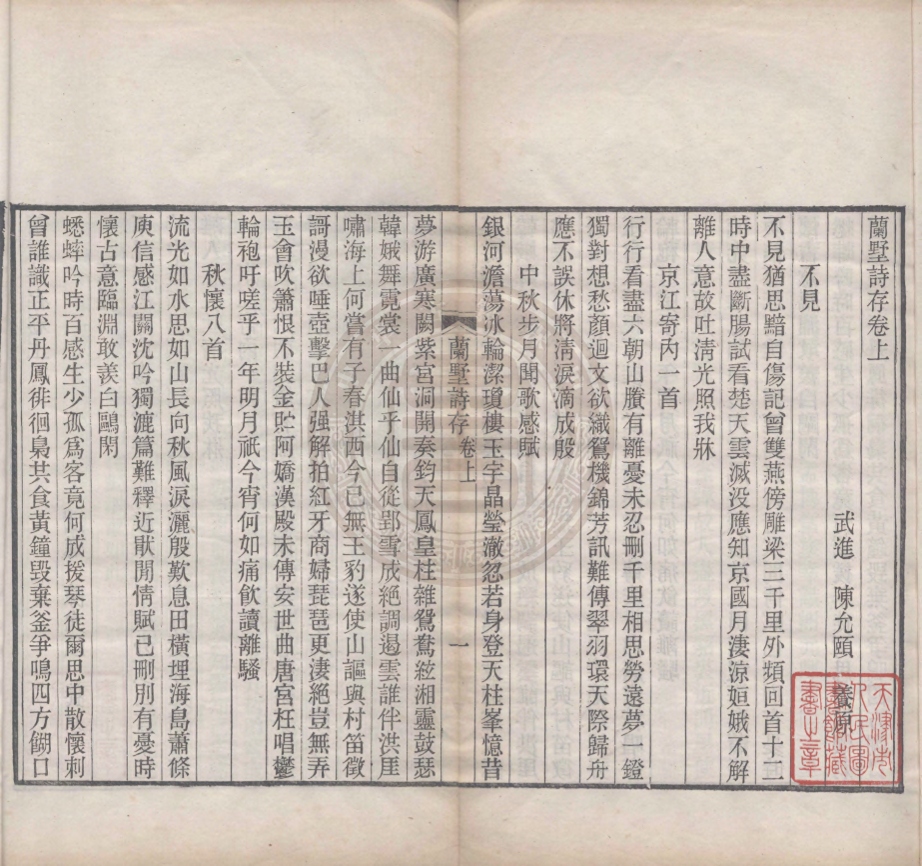 蘭墅詩存卷上
武進 陳允頤 養源
不見
不見猶思黯自傷記曾雙燕傍雕梁三千里外頻回首十二
時中盡斷腸試看楚天雲滅没應知京國月淒涼姮娥不解
離人意故吐淸光照我牀
京江寄內一首
行行看盡六朝山賸有離憂未忍刪千里相思勞遠夢一鐙
獨對想愁顏迴文欲織鴛機錦芳訊難傳翠羽環天際歸舟
應不誤休將淸淚滴成殷
中秋步月聞歌感賦
銀河澹蕩冰輪潔瓊樓玉宇晶瑩澈忽若身登天柱峯憶昔
蘭墅詩存 卷上 一
夢游廣寒闕紫宮洞開奏鈞天鳳皇柱雜鴛鴦絃湘靈鼓瑟
韓娥舞霓裳一曲仙乎仙自從郢雪成絶調遏雲誰伴洪厓
嘯海上何嘗有子春淇西今已無王豹遂使山謳與村笛徵
謌漫欲唾壺擊巴人强解拍紅牙商婦琵琶更淒絶豈無弄
玉會吹簫恨不裝金貯阿嬌漢殿未傳安世曲唐宮枉唱鬱
輪袍吁嗟乎一年明月祇今宵何如痛飮讀離騷
秋懷八首
流光如水思如山長向秋風淚灑殷歎息田橫埋海島蕭條
庾信感江關沈吟獨漉篇難釋近猒閒情賦已刪別有憂時
懷古意臨淵敢羨白鷗閑
蟋蟀吟時百感生少孤爲客竟何成援琴徒爾思中散懷刺
曾誰識正平丹鳳徘徊梟共食黃鐘毀棄釜爭鳴四方餬口
天津市
人民圖
書館藏
書之章